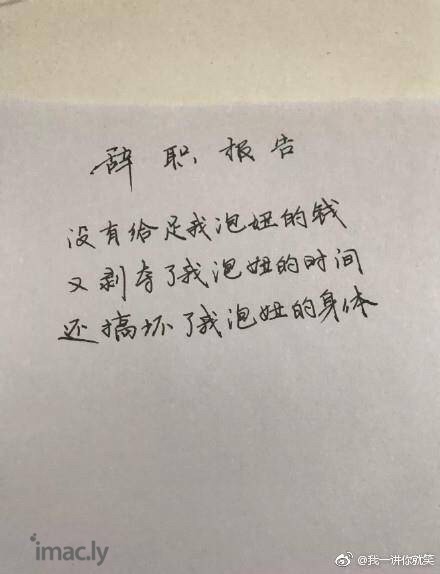 辞职报告
没有给足我泡妞的钱
又剥夺了我泡妞的时间
还搞坏了我泡妞的身体
imac.ly
@我一讲你就笑